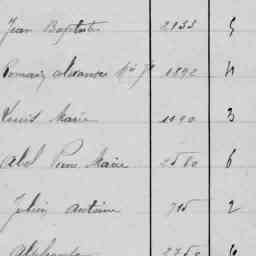 Jean Baptiste 2133 5
Romain Alexandre 1892 4
Louis Marie 1190 3
Abel Pierre Marie 2580 6
Julien Antoine 715 2
Alphonse 2750